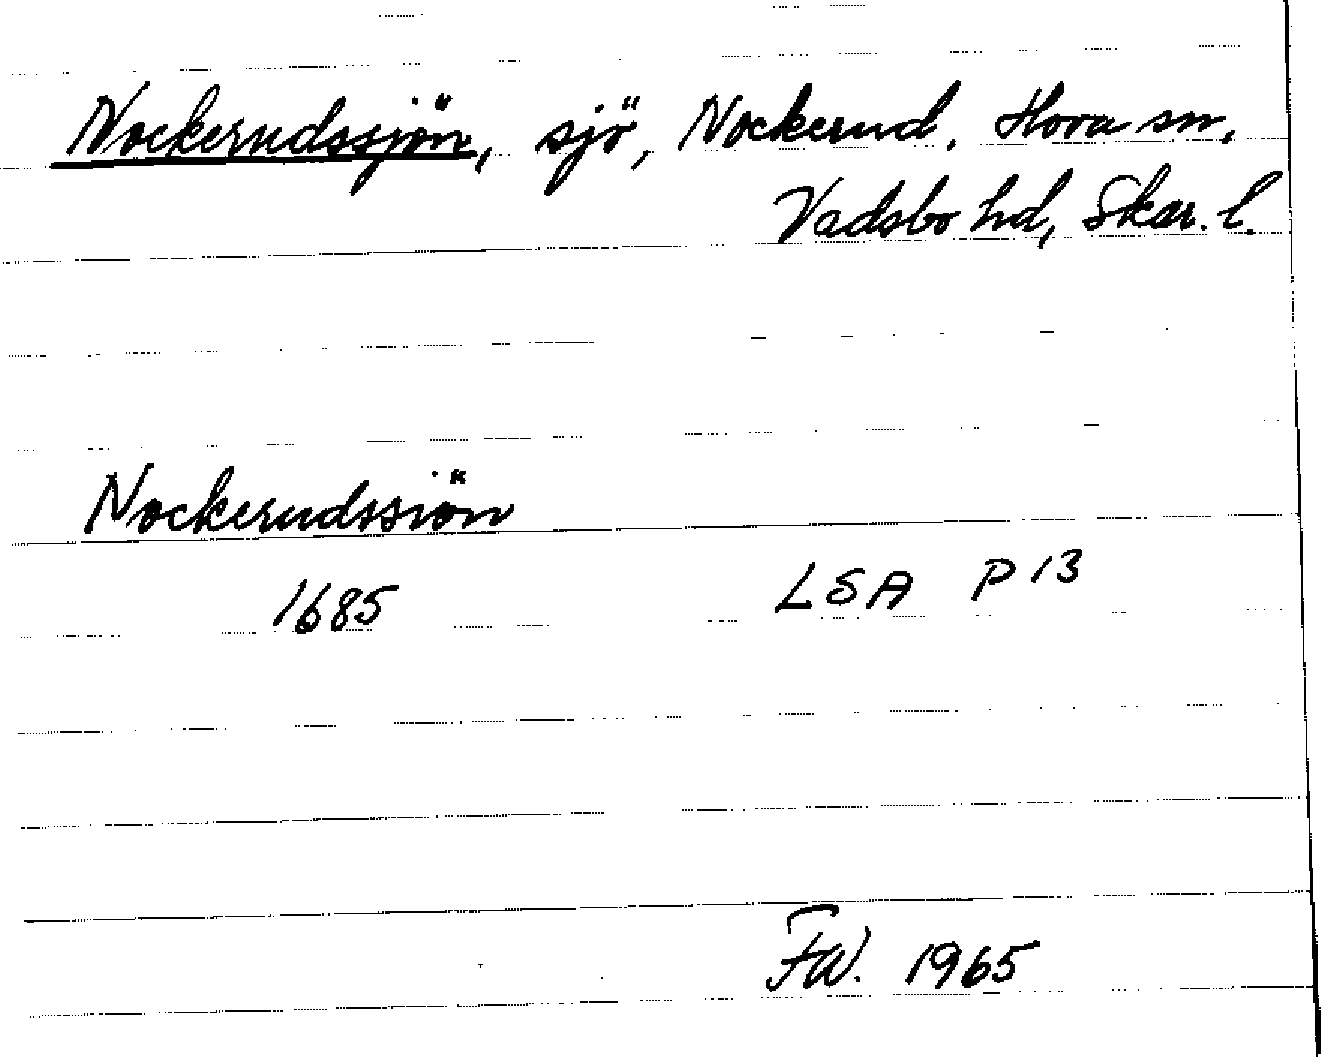 Nockerudssjön, sjö, Nockerud, Hova sn,
Vadsbo hd, Skar. l.
Nockerudssiön
1685 LSA P 13
FW. 1965